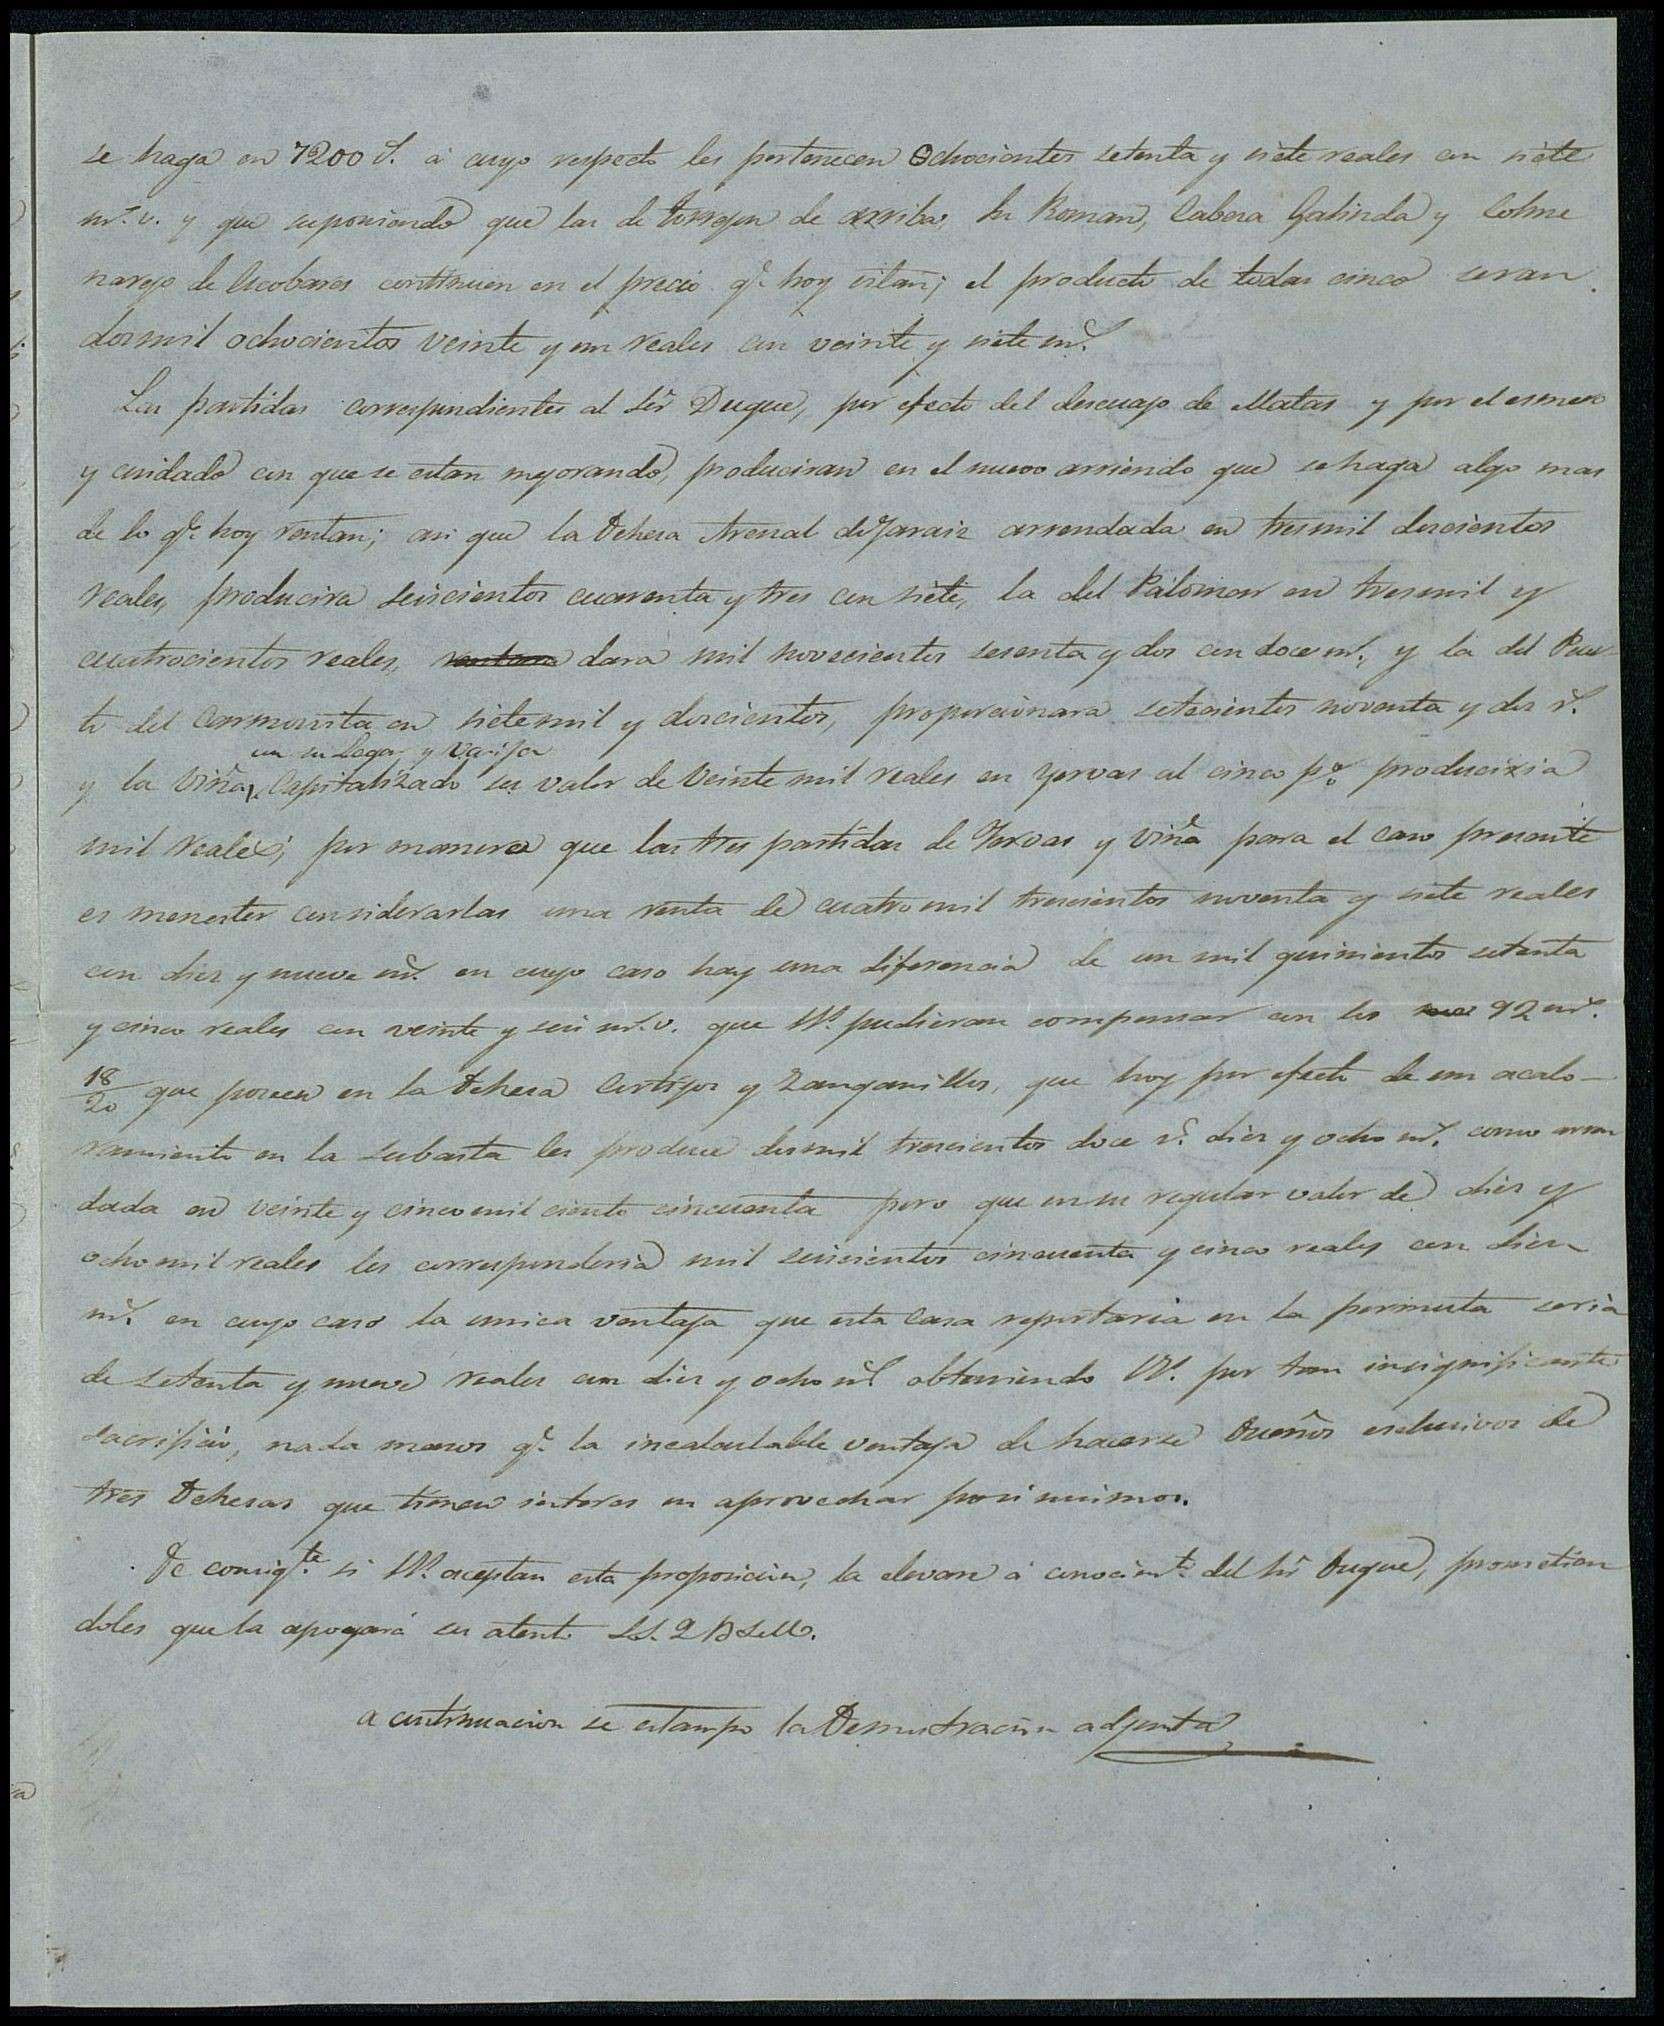 se haga en 7200 r.s á cuyo respecto les pertenecen Ochocientos setenta y siete reales con siete
mr.s v. y que suponiendo que las de Torrejon de arriba, Sn Roman, Cabeza Galinda y Colme
narejo de Escobares continuen en el precio q.e hoy estan; el producto de todas cinco seran
dosmil ochocientos veinte y un reales con veinte y siete mr.s
Las partidas correspondientes al Sor. Duque, por efecto del descuajo de Matas y por el esmero
y cuidado con que se estan mejorando, produciran en el nuevo arriendo que se haga algo mas
de lo q.e hoy rentan; asi que la Dehesa Arenal de Jaraiz arrendada en tresmil doscientos
reales, producira seiscientos cuarenta y tres con siete, la del Palomar en tresmil y
cuatrocientos reales, dara mil novecientos sesenta y dos con doce mr.s y la del Pues
to del Carmonita en sietemil y doscientos, proporcionara setecientos noventa y dos r.s
con su Lagar y Vasijas
y la Viña, Capitalizado su valor de Veinte mil reales en yervas al cinco p% produciria
mil reales; por manera que las tres partidas de Yervas y Viña para el caso presente
es menester considerarlas una renta de cuatro mil trescientos noventa y siete reales
con diez y nueve mr.s en cuyo caso hay una diferencia de un mil quinientos setenta
y cinco reales con veinte y seis mr.s v. que VV. pudieran compensar con los 92 mr.s
18/20 que poseen en la Dehesa Cortijos y Zanganillos, que hoy por efecto de un acalo-
ramiento en la subasta les produce dosmil trescientos doce r.s diez y ocho mr.s como arren
dada en veinte y cinco mil ciento cincuenta pero que en su regular valor de diez y
ocho mil reales les corresponderia mil seiscientos cincuenta y cinco reales con diez
mr.s en cuyo caso la unica ventaja que esta Casa reportaria en la permuta seria
de setenta y nueve reales con diez y ocho mr.s obteniendo VV. por tan insignificante
sacrificio, nada menos q.e la incalculable ventaja de hacerse Dueños esclusivos de
tres Dehesas que tienen interes en aprovechar por si mismos.
De consig.te si VV. aceptan esta proposicion, la elevare á conocim.to del Sor Duque, prometien
doles que la apoyará su atento S.S. Q B S M.
a continuacion se estampo la Demostracion adjunta